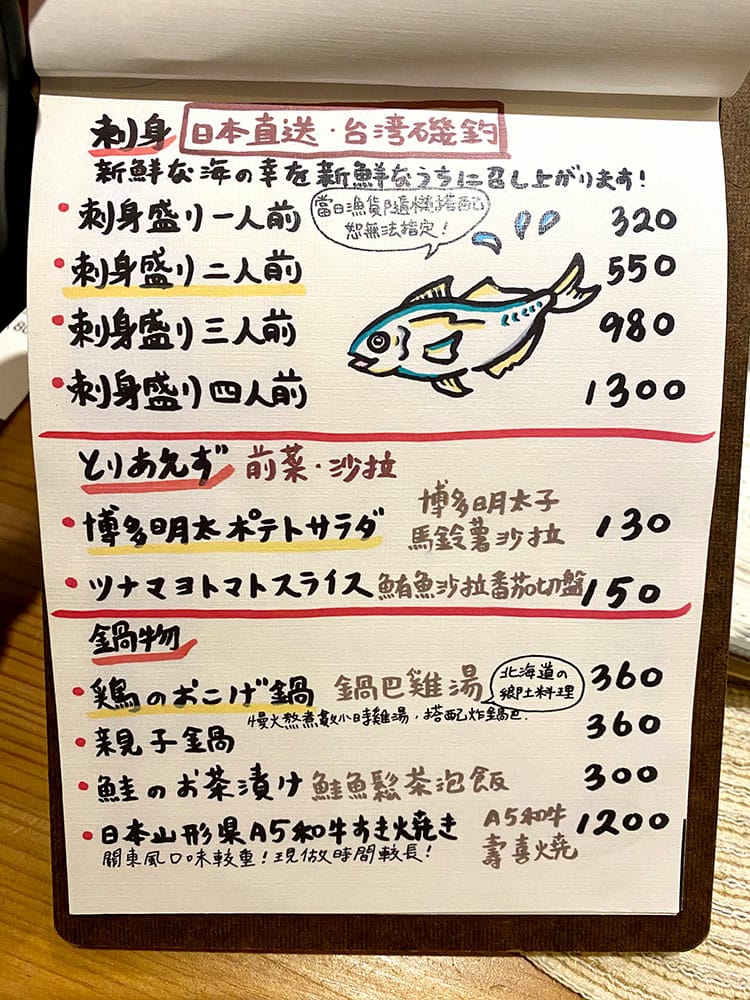 刺身 日本直送・台湾磯釣
新鮮な海の幸を新鮮なうちに召し上がります!
・刺身盛り一人前 320
當日漁貨隨機搭配
恕無法指定!
・刺身盛り二人前 550
・刺身盛り三人前 980
・刺身盛り四人前 1300
とりあえず 前菜・沙拉
・博多明太ポテトサラダ 博多明太子 130
馬鈴薯沙拉
・ツナマヨトマトスライス 鮪魚沙拉番茄切盤 150
鍋物
・鶏のおこげ鍋 鍋巴雞湯 360
北海道の
郷土料理
慢火熬煮數小時雞湯,搭配炸鍋巴.
・親子鍋 360
・鮭のお茶漬け 鮭魚鬆茶泡飯 300
・日本山形県A5和牛すき焼き A5和牛 1200
壽喜燒
關東風口味較重!現做時間較長!